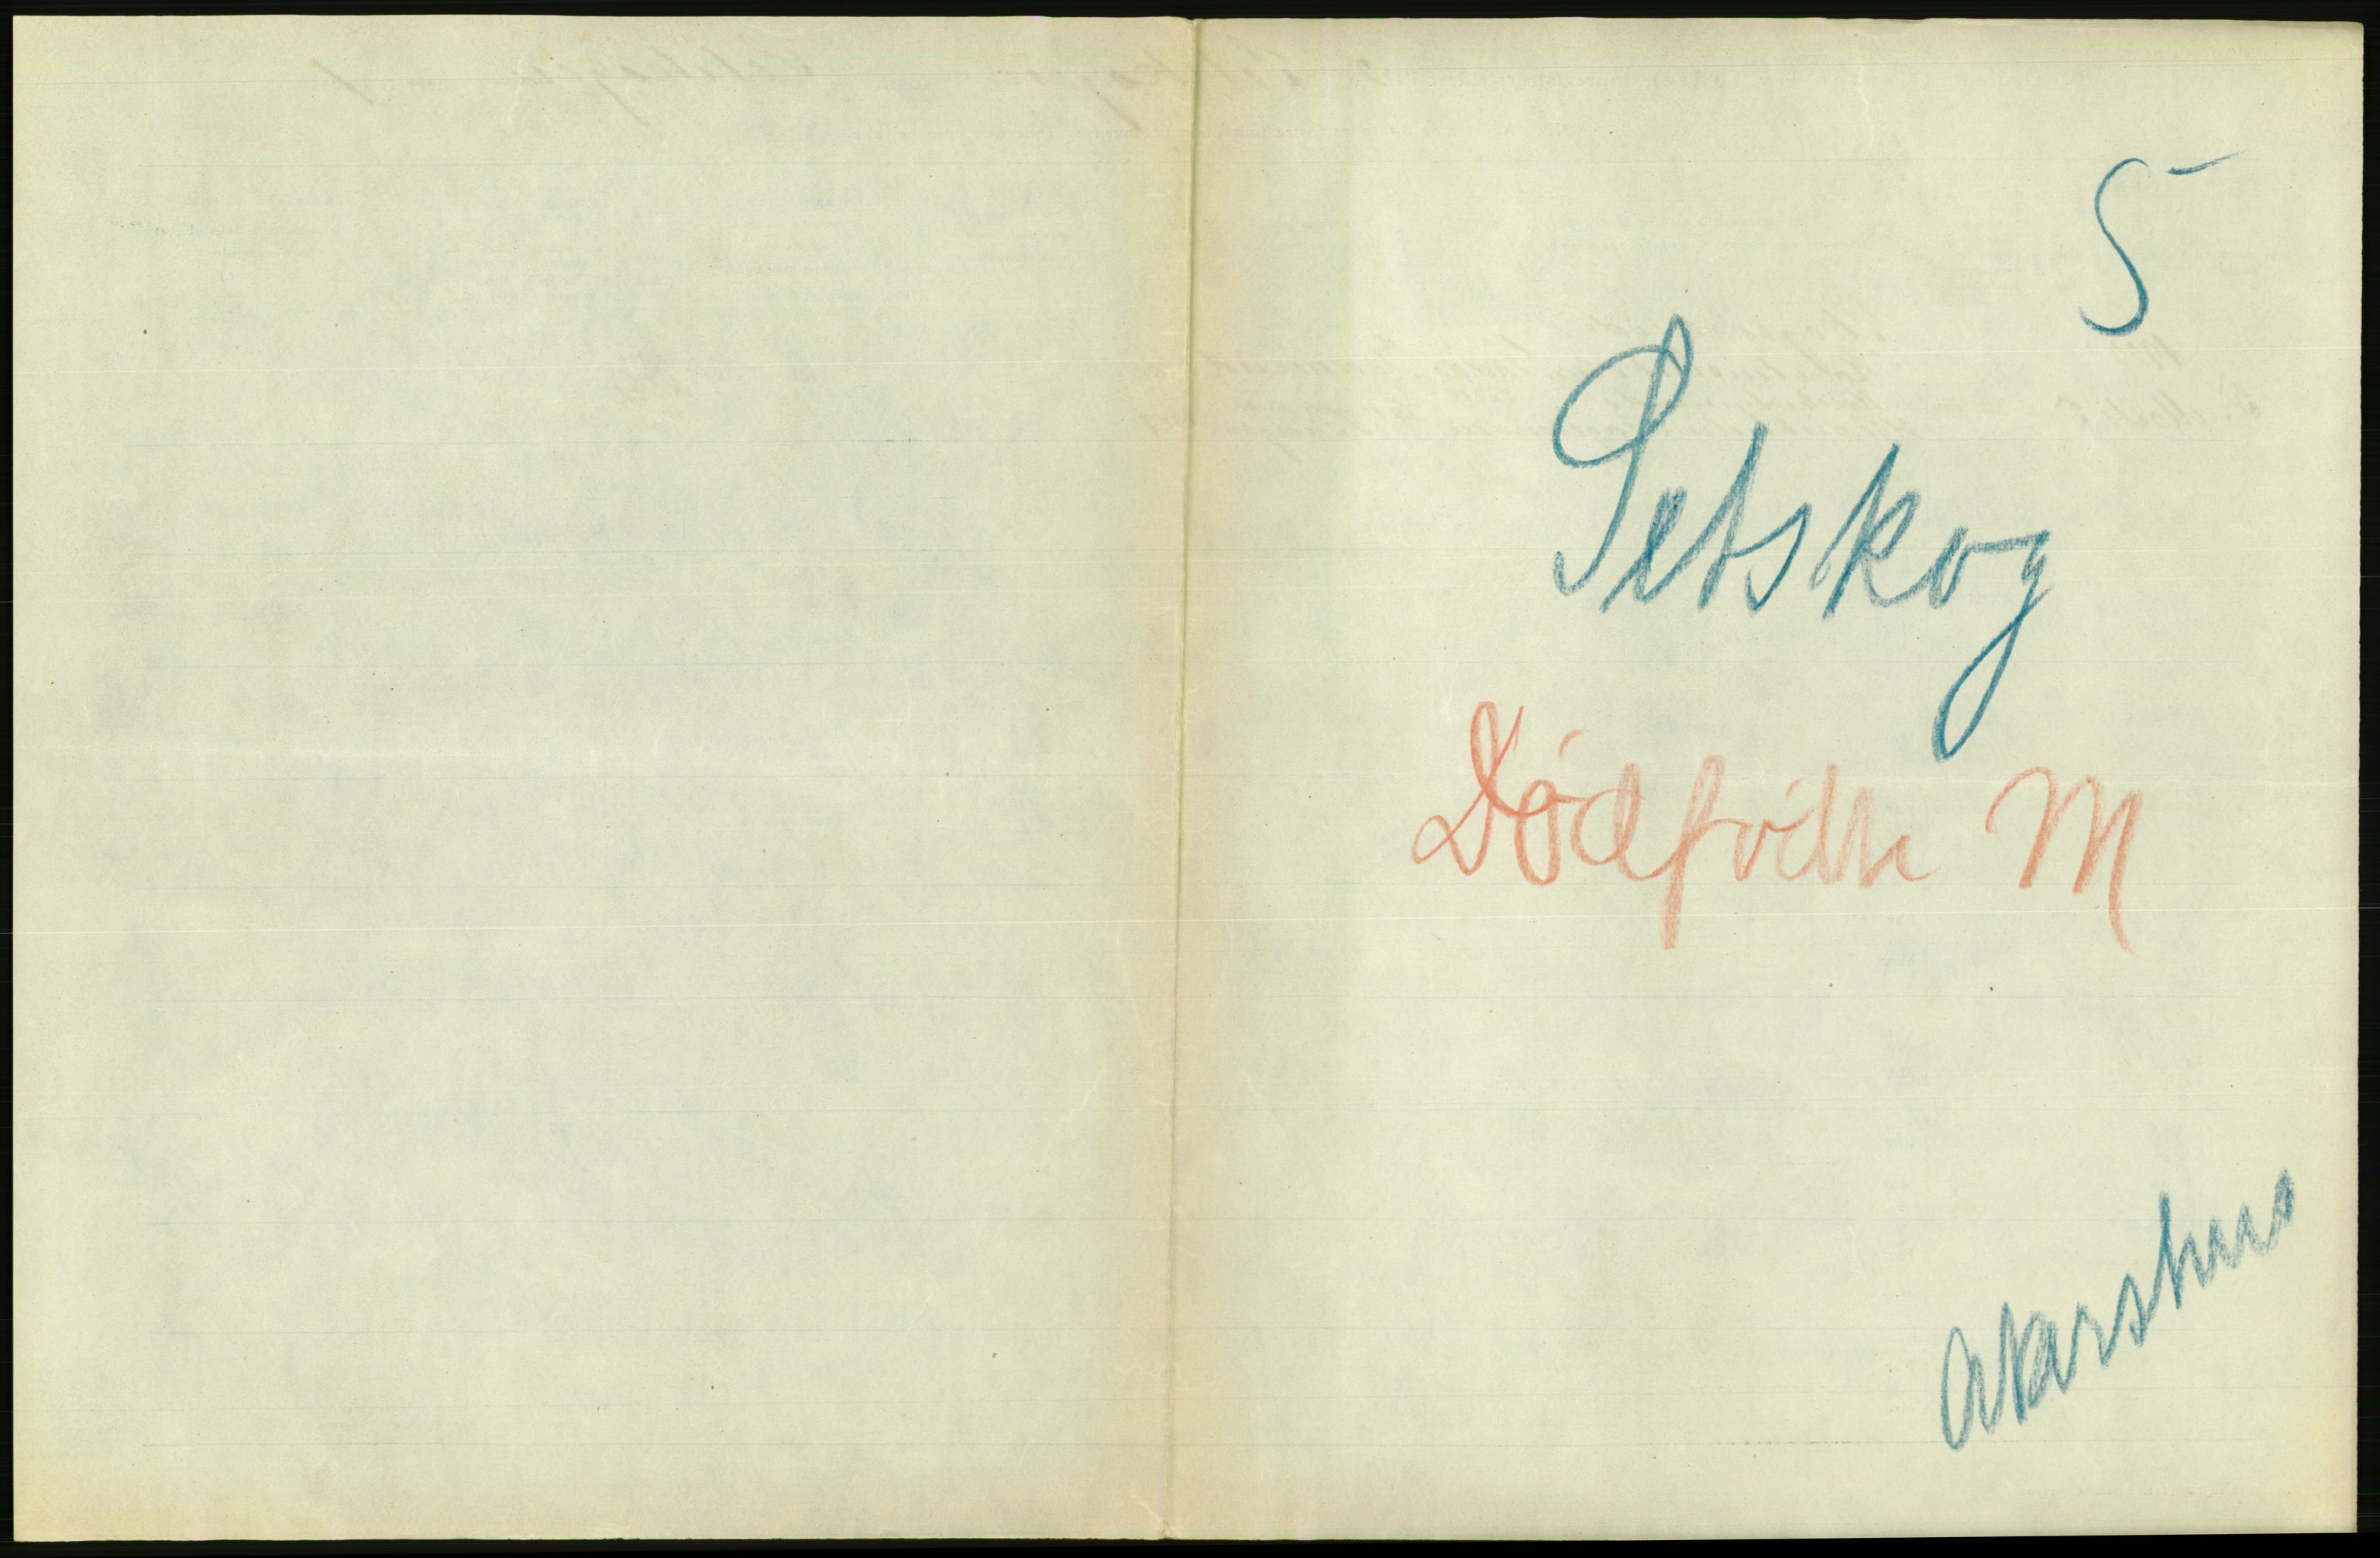 5
Setskog
Dødfødte M
Akershus